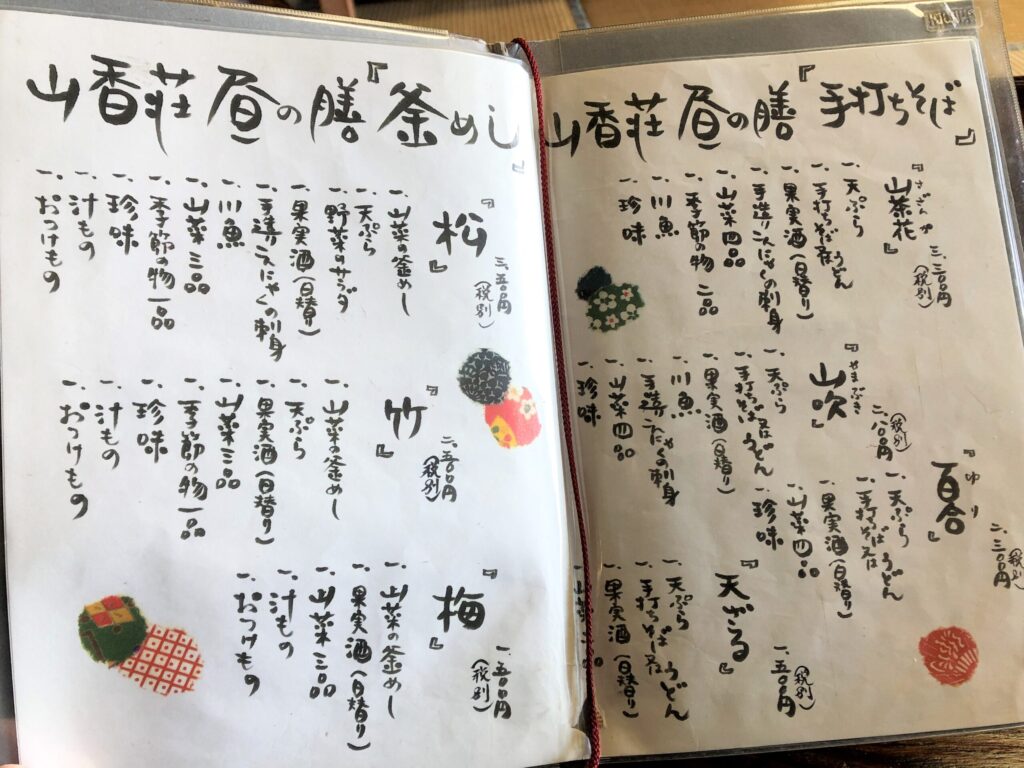 山香荘 昼の膳『手打ちそば』
さざんか
『山茶花』
三、三〇〇円
(税別)
一、天ぷら
一、手打ちそば又はうどん
一、果実酒(日替り)
一、手造りこんにゃくの刺身
一、山菜四品
一、季節の物 二品
一、川魚
一、珍味
やまぶき
『山吹』
二、八〇〇円
(税別)
一、天ぷら
一、手打ちそば又はうどん
一、果実酒(日替り)
一、川魚
一、手造りこんにゃくの刺身
一、山菜四品
一、珍味
ゆり
『百合』
二、三〇〇円
(税別)
一、天ぷら
一、手打ちそば又はうどん
一、果実酒(日替り)
一、山菜四品
一、珍味
『天ざる』
一、五〇〇円
(税別)
一、天ぷら
一、手打ちそば又はうどん
一、果実酒(日替り)
一、山菜
山香荘 昼の膳『釜めし』
『松』
三、五〇〇円
(税別)
一、山菜の釜めし
一、天ぷら
一、野菜のサラダ
一、果実酒(日替り)
一、手造りこんにゃくの刺身
一、川魚
一、山菜三品
一、季節の物一品
一、珍味
一、汁もの
一、おつけもの
『竹』
二、五〇〇円
(税別)
一、山菜の釜めし
一、天ぷら
一、果実酒(日替り)
一、山菜三品
一、季節の物一品
一、珍味
一、汁もの
一、おつけもの
『梅』
一、五〇〇円
(税別)
一、山菜の釜めし
一、果実酒(日替り)
一、山菜三品
一、汁もの
一、おつけもの